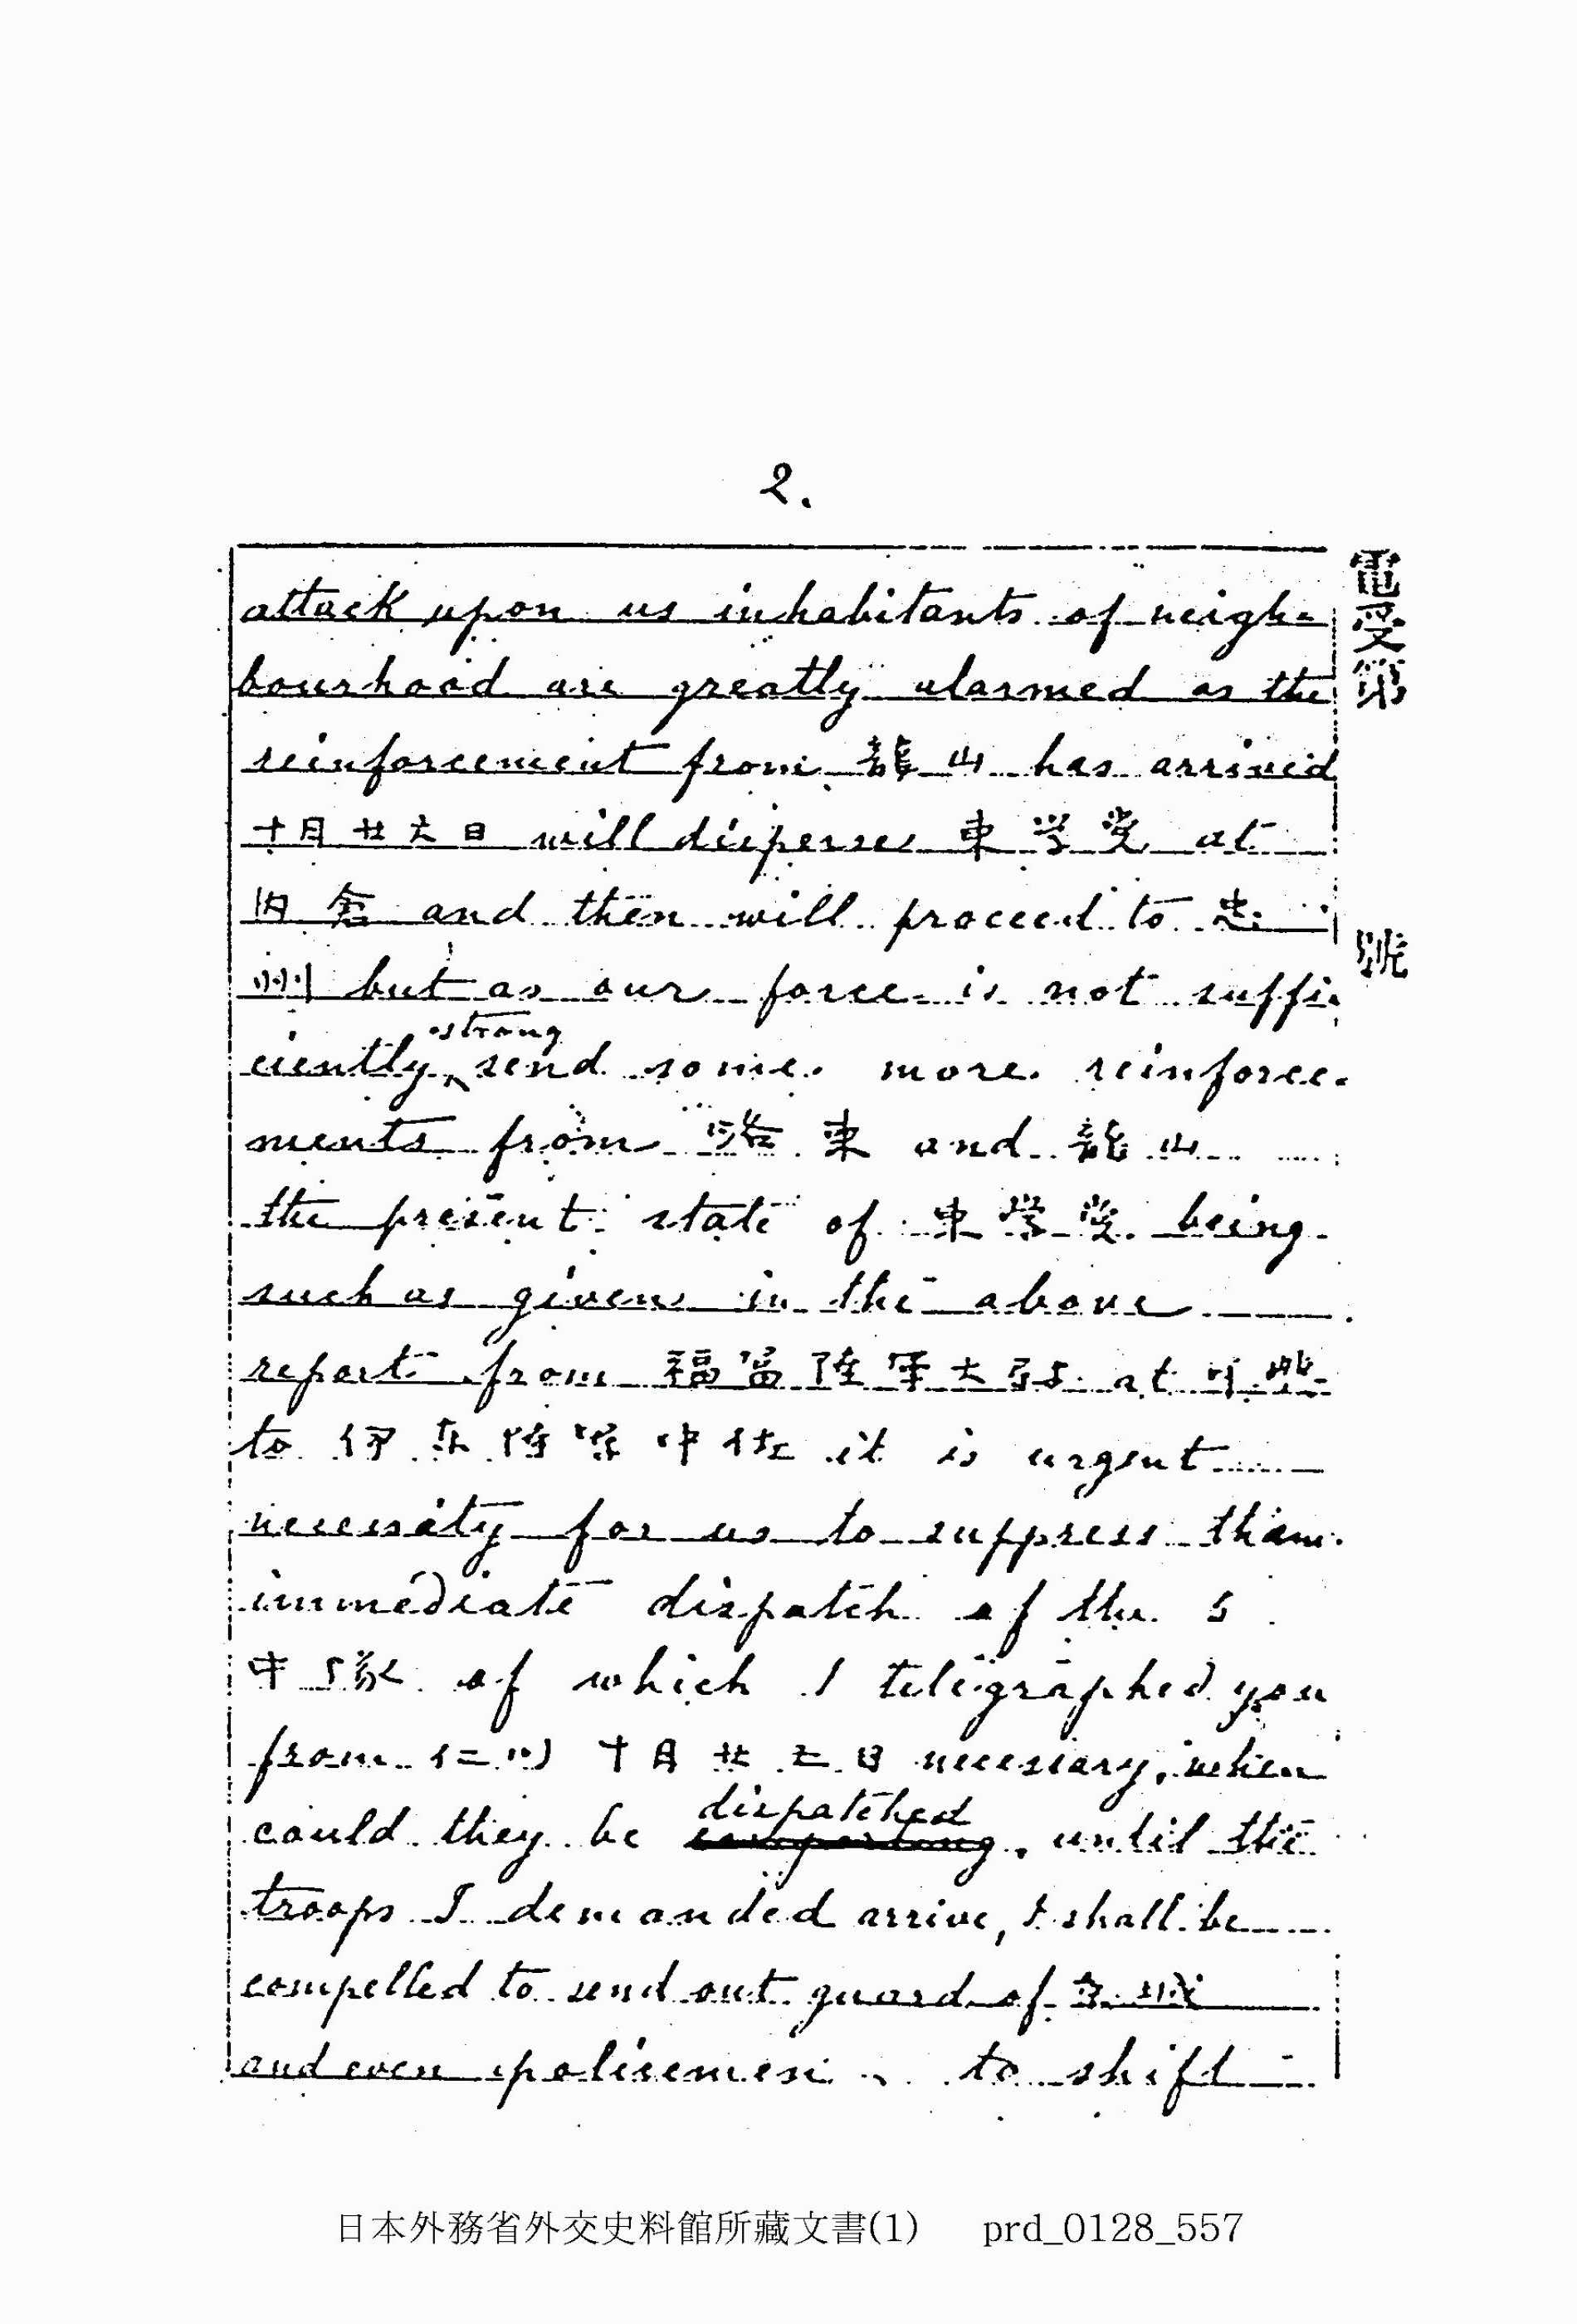 2.
attack upon us inhabitants of neigh-
bourhood are greatly alarmed as the
reinforcement from 龍山 has arrived
十月廿六日 will disperse 東学党 at
旧倉 and then will proceed to 忠
州 but as our force is not suffi-
ciently strong send some more reinforce-
ments from 洛東 and 龍山
the present state of 東学党 being
such as given in the above
report from 福富陸軍大尉 at 可興
to 伊 陸軍中佐 it is urgent
necessity for us to suppress them.
immediate dispatch of the 5
中隊 of which I telegraphed you
from 仁川 十月廿 日 necessary, when
could they be dispatched, until the
troops I demanded arrive, I shall be
compelled to send out guard of 京城
and even policemen to shift
電受第 號
日本外務省外交史料館所藏文書(1) prd_0128_557